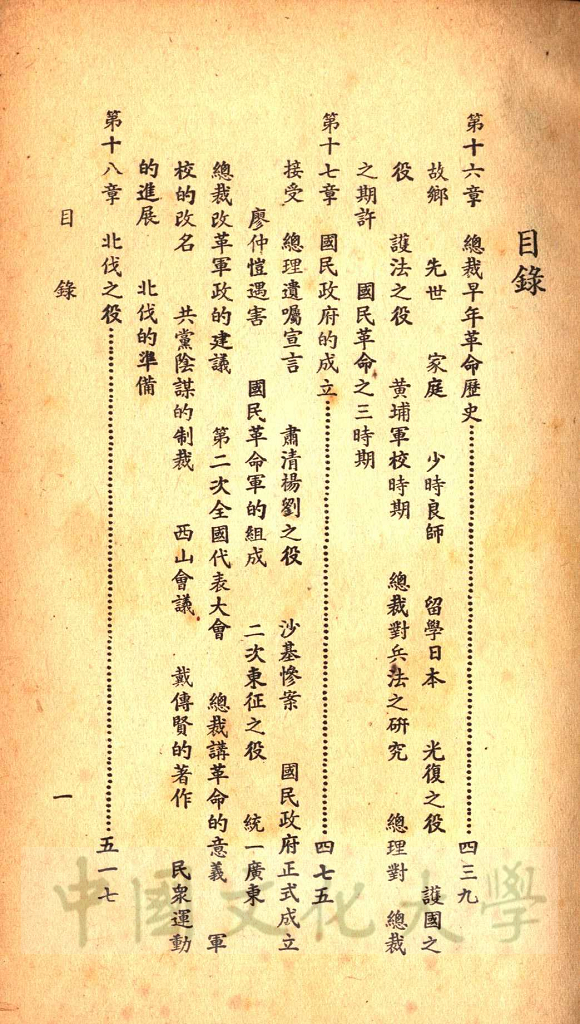 目錄
第十六章　總裁早年革命歷史……四三九
故鄉　先世　家庭　少時良師　留學日本　光復之役　護國之
役　護法之役　黃埔軍校時期　總裁對兵法之研究　總理對　總裁
之期許　國民革命之三時期
第十七章　國民政府的成立……四七五
接受　總理遺囑宣言　肅清楊劉之役　沙基慘案　國民政府正式成立
廖仲愷遇害　國民革命軍的組成　二次東征之役　統一廣東
總裁改革軍政的建議　第二次全國代表大會　總裁講革命的意義　軍
校的改名　共黨陰謀的制裁　西山會議　戴傳賢的著作　民衆運動
的進展　北伐的準備
第十八章　北伐之役……五一七
目　錄
一
中國文化大學